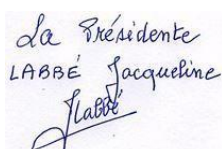 La Présidente
LABBÉ Jacqueline
JLabbé